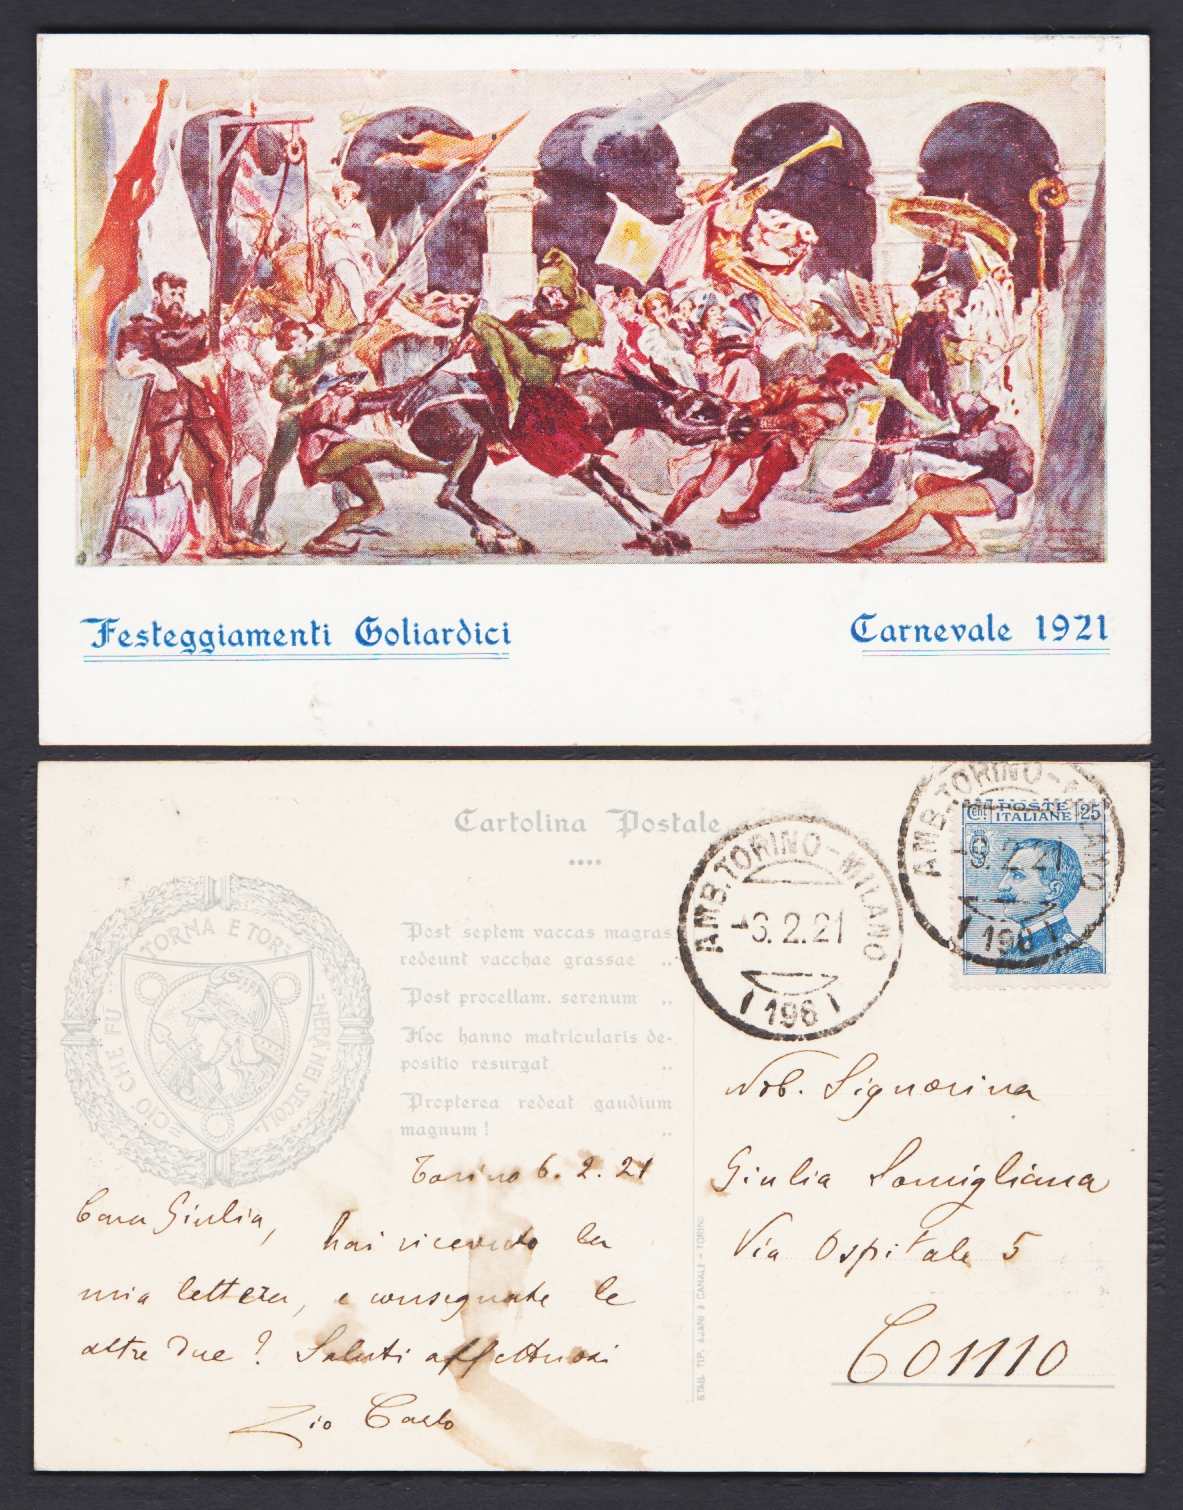 Festeggiamenti Goliardici
Carnevale 1921
Cartolina Postale
CIÒ CHE FU TORNA E TORNERÀ NEI SECOLI
Post septem vaccas magras
redeunt vacchae grassae ..
Post procellam, serenum ..
Hoc hanno matricularis de-
positio resurgat ..
Propterea redeat gaudium
magnum! ..
AMB. TORINO-MILANO
-6.2.21
196
AMB. TORINO-MILANO
-6.2.21
196
POSTE
ITALIANE
Cent. 25
Torino 6.2.21
Cara Giulia,
hai ricevuto la
mia lettera, e consegnate le
altre due? Saluti affettuosi
Zio Carlo
STAB. TIP. AJANI & CANALE - TORINO
Nob. Signorina
Giulia Somigliana
Via Ospitale 5
COMO